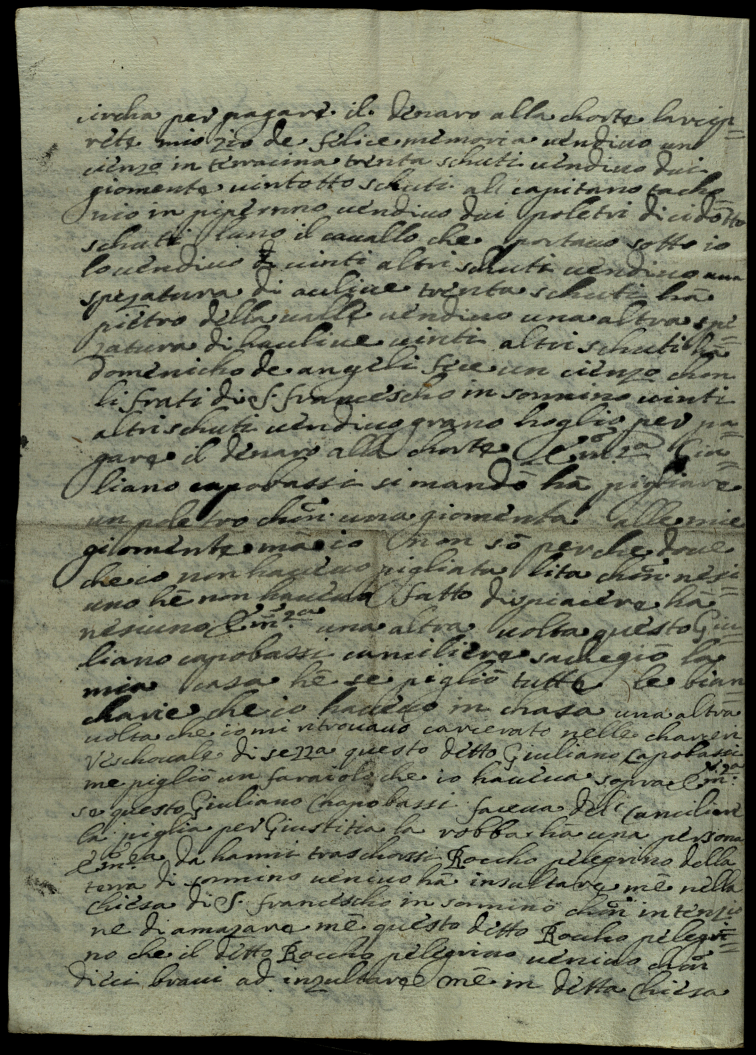 circha per pagare il denaro alla chorte larcip=
rete mio zio de felice memoria uendiuo un
cienzo in terracina trenta schuti uendiuo dui
giomente uintotto schuti all capitano tacho
nio in piperno uendiuo dui poletri dicidotto
schuti luno il cauallo che portauo sotto io
lo uendiuo uinti altri schuti uendiuo una
spezatura di auliue trenta schuti hà
pietro della ualle uendiuo una altra spe=
zatura di hauliue uinti altri schuti hà
domenicho de angeli fece un cienzo chon
li frati di S. francescho in sonnino uinti
altri schuti uendiuo grano hoglio per pa=
gare il denaro alla chorte Em.za Giu=
liano capobassi si mandò hà pigliare
un poletro chon una giomenta alle mie
giomente mà io non sò perche doue
che io non haueuo pigliata lita chon nesi=
uno hè non haueua fatto dispiacere hà
nesiuno Em.za una altra uolta questo Giu=
liano capobassi canciliere sachegiò la
mia casa hè se pigliò tutte le bian=
charie che io haueuo in chasa una altra
uolta che io mi ritrouauo carcerato nelle charceri
Veschouale di sezza questo ditto Giuliano Capobassi
me pigliò un faraiolo che io haueua sopra Em.za
se questo Giuliano Chapobassi faceua del Canciliere
la piglia per Giustitia la robba hà una persona
Em.za da hanni traschorsi Roccho pelegrino della
terra di sonnino ueniuo hà insultare mè nella
chiesa di S. francescho in sonnino chon intenzio
ne di amazare mè questo ditto Roccho pelegri=
no che il ditto Roccho pelegrino ueniuo chon
dieci braui ad inzultare mè in detta chiesa